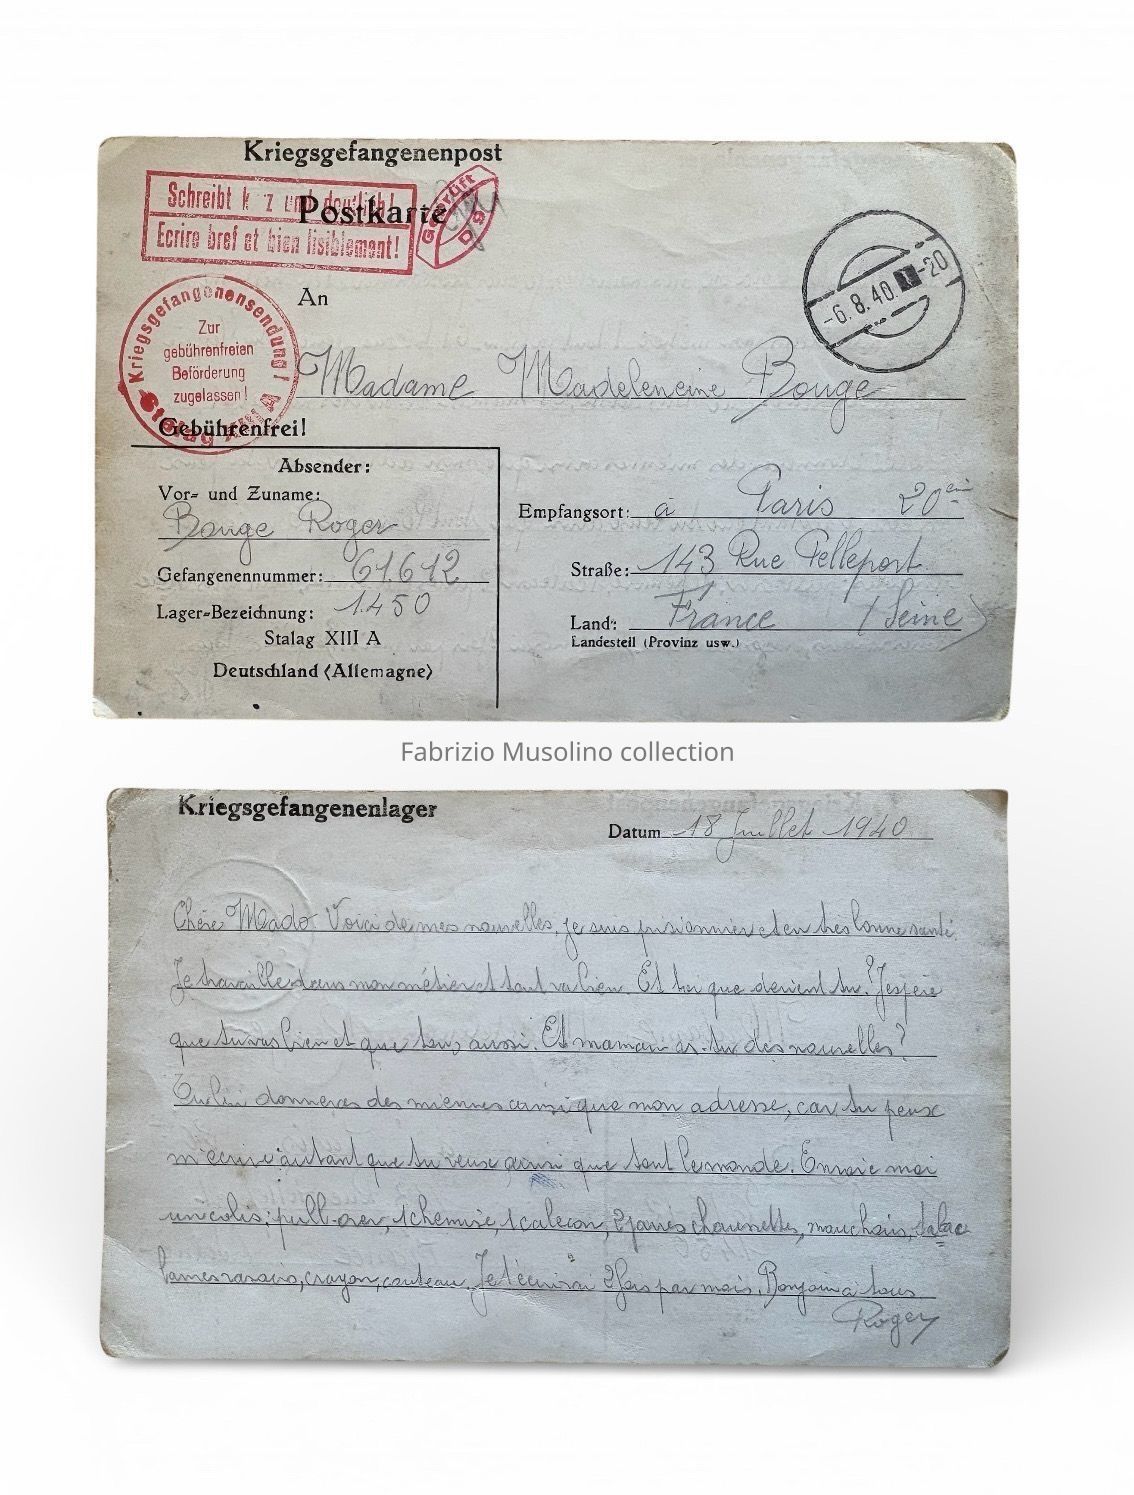 Kriegsgefangenenpost
Schreibt k z und deutlich!
Ecrire bref et bien lisiblement!
Postkarte
Geprüft
-6.8.40. -20
An
Kriegsgefangenensendung!
Zur
gebührenfreien
Beförderung
zugelassen!
Madame Madeleneine Bouge
Gebührenfrei!
Absender:
Vor- und Zuname:
Bouge Roger
Gefangenennummer: 61.612
Lager-Bezeichnung: 1.450
Stalag XIII A
Deutschland (Allemagne)
Empfangsort: à Paris 20eme
Straße: 143 Rue Pelleport
Land: France (Seine)
Landesteil (Provinz usw.)
Fabrizio Musolino collection
Kriegsgefangenenlager
Datum 18 Juillet 1940
Chère Mado Voici de mes nouvelles, je suis prisonnier et en très bonne santé.
Je travaille dans mon métier et tout va bien. Et toi que devient tu? J'espère
que tu vas bien et que tous aussi. Et maman as-tu des nouvelles?
Tu lui donneras des miennes ainsi que mon adresse, car tu peux
m'écrire autant que tu veux ainsi que tout le monde. Envoie moi
un colis; pull-over, 1 chemise, 1 caleçon, 2 paires chaussettes, mouchoirs, tabac
lames rasoirs, crayon, couteau. Je t'écrirai 2 fois par mois. Bonjour à tous
Roger